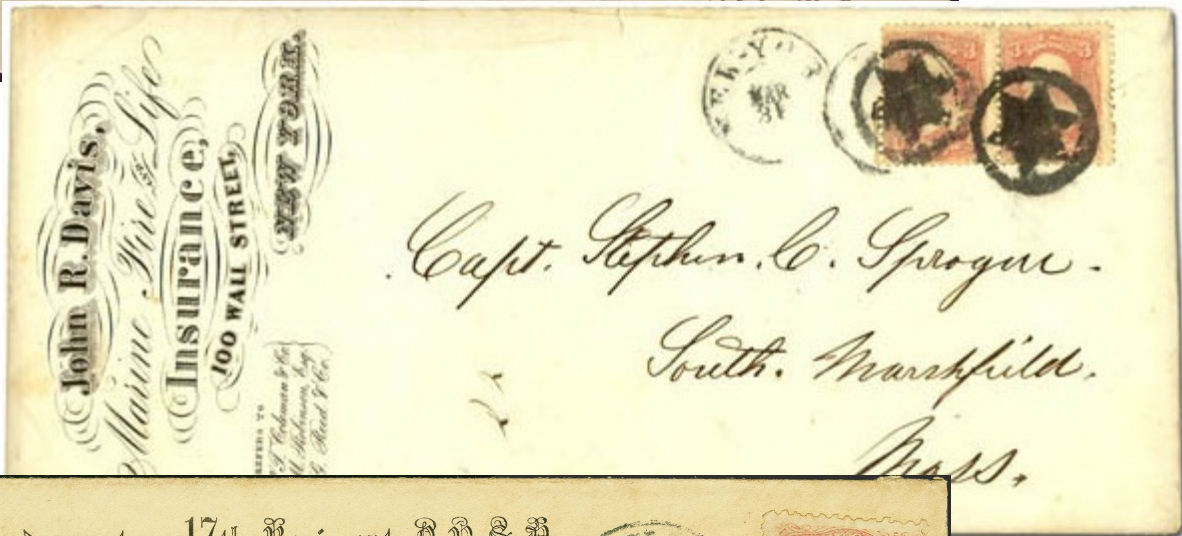 John R. Davis,
Marine Fire AND Life
Insurance,
100 WALL STREET,
NEW YORK.
REFERS TO
Coleman & Co
Robinson, Esq
G. Reed & Co.
NEW-YOR
MAR
3
3
Capt. Stephen. C. Sprague.
South. Marshfield.
Mass.
17th Regiment